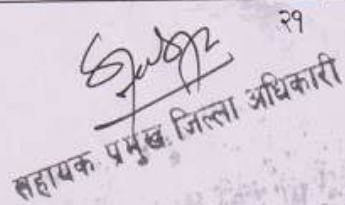 २१
सहायक प्रमुख जिल्ला अधिकारी